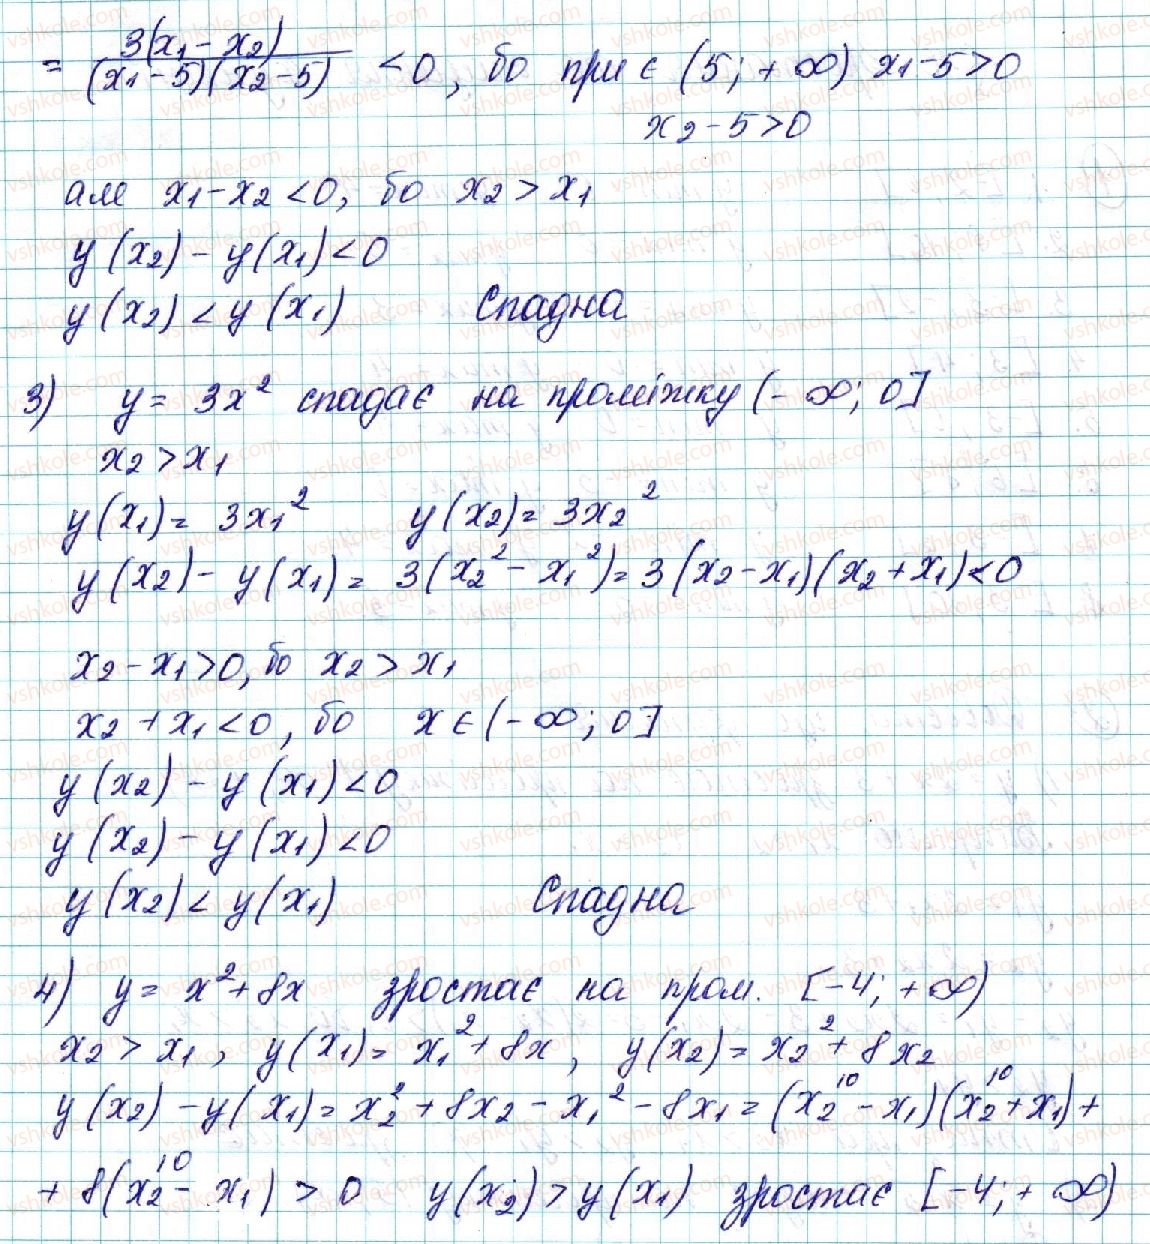 = 3(x₁ - x₂) / (x₁ - 5)(x₂ - 5) < 0, бо при є (5; +∞) x₁ - 5 > 0
x₂ - 5 > 0
але x₁ - x₂ < 0, бо x₂ > x₁
y(x₂) - y(x₁) < 0
y(x₂) < y(x₁) Спадна
3) y = 3x² спадає на проміжку (-∞; 0]
x₂ > x₁
y(x₁) = 3x₁² y(x₂) = 3x₂²
y(x₂) - y(x₁) = 3(x₂² - x₁²) = 3(x₂ - x₁)(x₂ + x₁) < 0
x₂ - x₁ > 0, бо x₂ > x₁
x₂ + x₁ < 0, бо x є (-∞; 0]
y(x₂) - y(x₁) < 0
y(x₂) - y(x₁) < 0
y(x₂) < y(x₁) Спадна
4) y = x² + 8x зростає на пром. [-4; +∞)
x₂ > x₁, y(x₁) = x₁² + 8x, y(x₂) = x₂² + 8x₂
y(x₂) - y(x₁) = x₂² + 8x₂ - x₁² - 8x₁ = (x₂ - x₁)(x₂ + x₁) +
+ 8(x₂ - x₁) > 0 y(x₂) > y(x₁) зростає [-4; +∞)